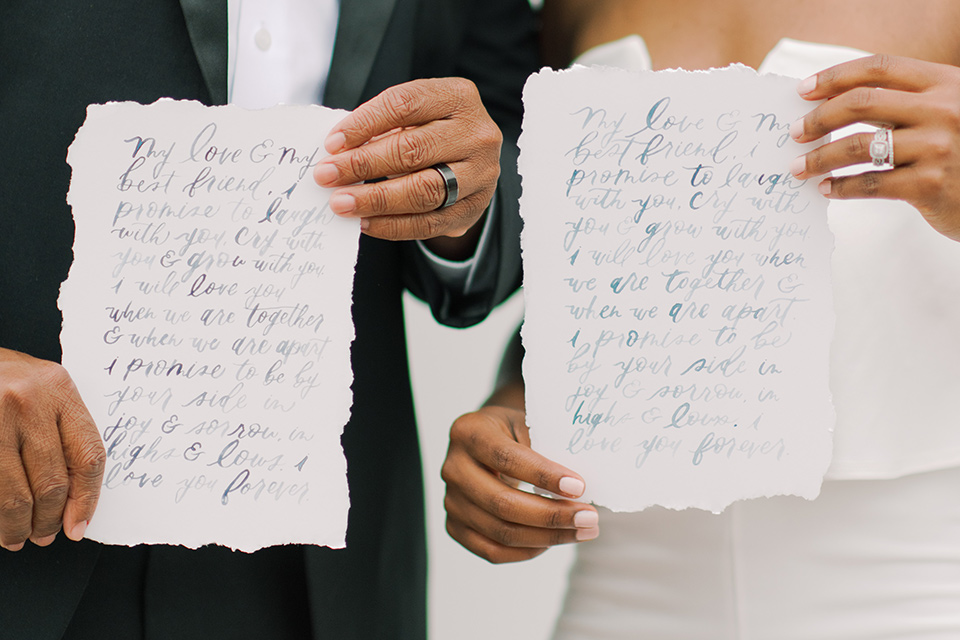 My love & my
best friend. I
promise to laugh
with you, cry with
you & grow with you.
I will love you
when we are together
& when we are apart.
I promise to be by
your side in
joy & sorrow, in
highs & lows. I
love you forever.
My love & my
best friend. I
promise to laugh
with you, cry with
you & grow with you
I will love you when
we are together &
when we are apart.
I promise to be
by your side in
joy & sorrow, in
highs & lows. I
love you forever.